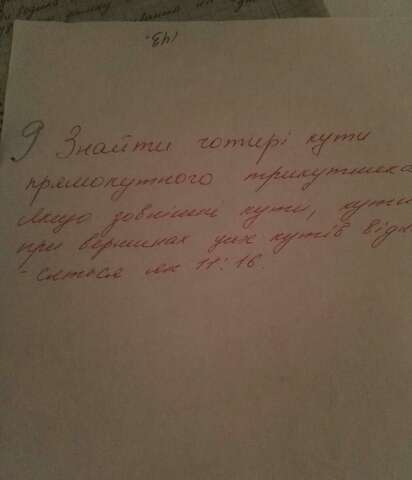 143.
9 Знайти чотирі кути
прямокутного трикутника
якщо зовнішні кути, кути
при вершинах цих кутів від
-сяться як 11:16.